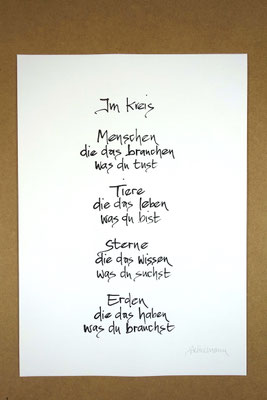 Im Kreis
Menschen
die das brauchen
was du tust
Tiere
die das leben
was du bist
Sterne
die das wissen
was du suchst
Erden
die das haben
was du brauchst